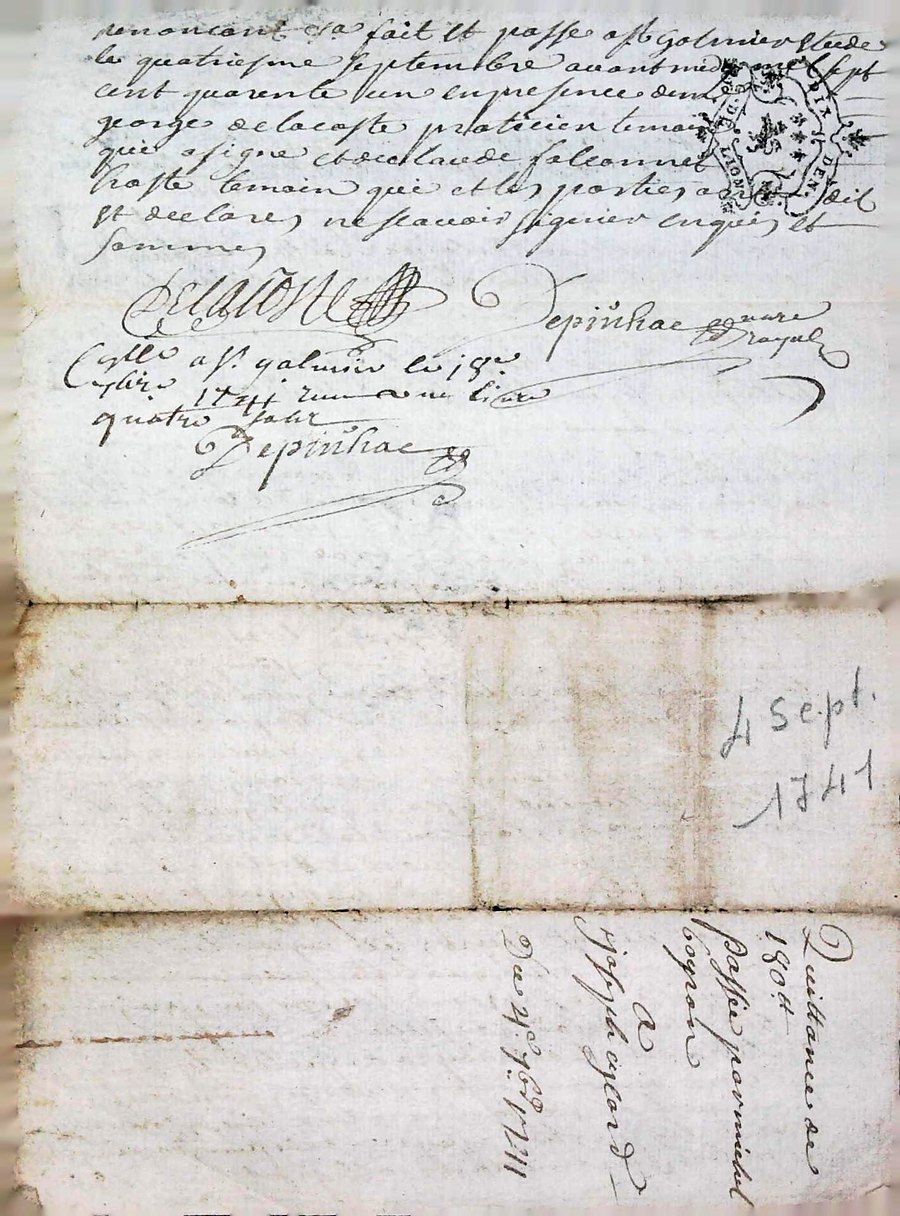 renoncant &a fait et passe a st galmier etude
le quatriesme septembre avant midi mil sept
cent quarente un en presence de
george delacoste praticien temoin
qui a signe et de claude falconnet
hoste temoin qui et les parties ont dit
et declares ne scavoir signier enquis et
sommes
Delacoste
Depinhac nore
royal
Cylle a st galmier le 18e
7bre 1741 receu une livre
quatre solz
Depinhac
GEN. DE LYON
DIX DEN.
4 sept.
1741
Quittance de
180tt
Passée par michel
boyron
a
joseph cyzeron
Du 4e 7bre 1741